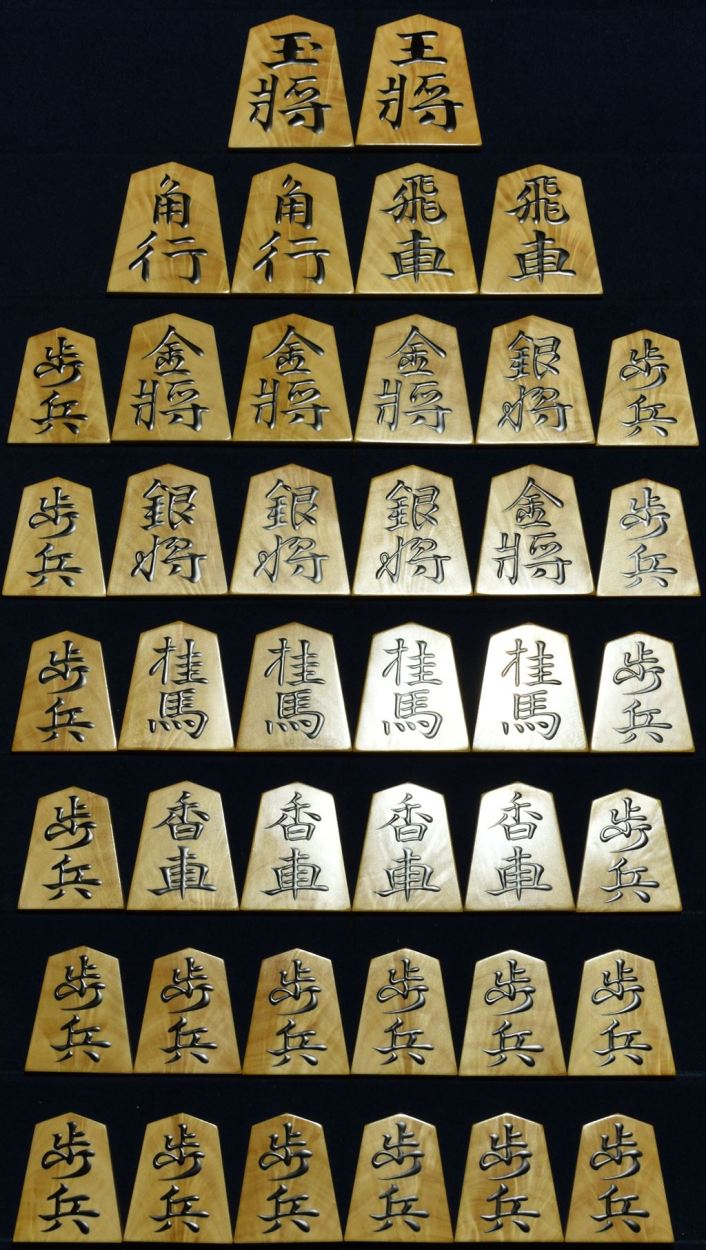 玉將 王將
角行 角行 飛車 飛車
歩兵 金將 金將 金將 銀将 歩兵
歩兵 銀将 銀将 銀将 金將 歩兵
歩兵 桂馬 桂馬 桂馬 桂馬 歩兵
歩兵 香車 香車 香車 香車 歩兵
歩兵 歩兵 歩兵 歩兵 歩兵 歩兵
歩兵 歩兵 歩兵 歩兵 歩兵 歩兵